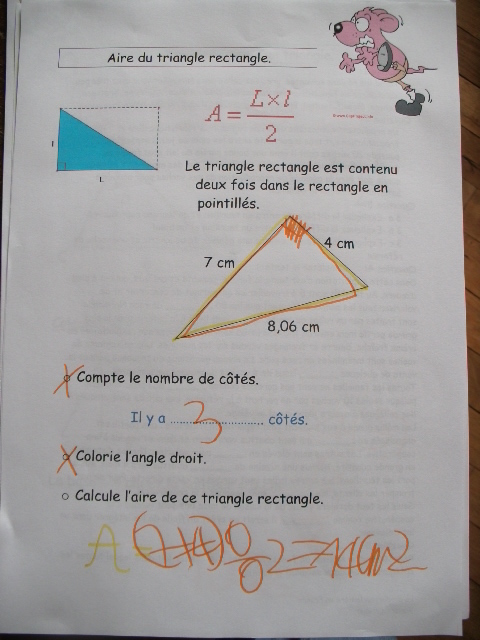 Aire du triangle rectangle.
A = L×l / 2
l
L
Le triangle rectangle est contenu
deux fois dans le rectangle en
pointillés.
7 cm
4 cm
8,06 cm
Compte le nombre de côtés.
Il y a ....3.... côtés.
Colorie l'angle droit.
Calcule l'aire de ce triangle rectangle.
A = (7×4) : 2 = 14cm2